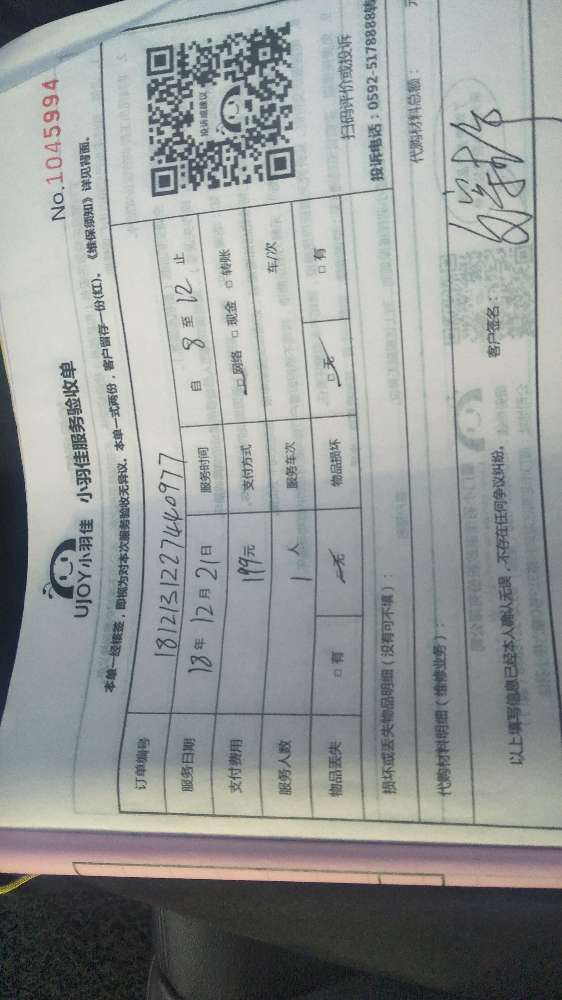 No.1045994
UJOY小羽佳 小羽佳服务验收单
本单一经核签，即视为对本次服务验收无异议。本单一式两份，客户留存一份(红)。《维保须知》详见背面。
订单编号 1812131227440977
服务日期 18年12月21日 服务时间 自 8 至 12 止
支付费用 199元 支付方式 □网络 □现金 □转账
服务人数 1 人 服务车次 车/次
物品丢失 □有 □无 物品损坏 □无 □有
投诉或建议
扫码评价或投诉
投诉电话：0592-5178888转
损坏或丢失物品明细（没有可不填）：
代购材料明细（维修业务）： 代购材料总额： 元
以上填写信息已经本人确认无误，不存在任何争议纠纷。 客户签名：